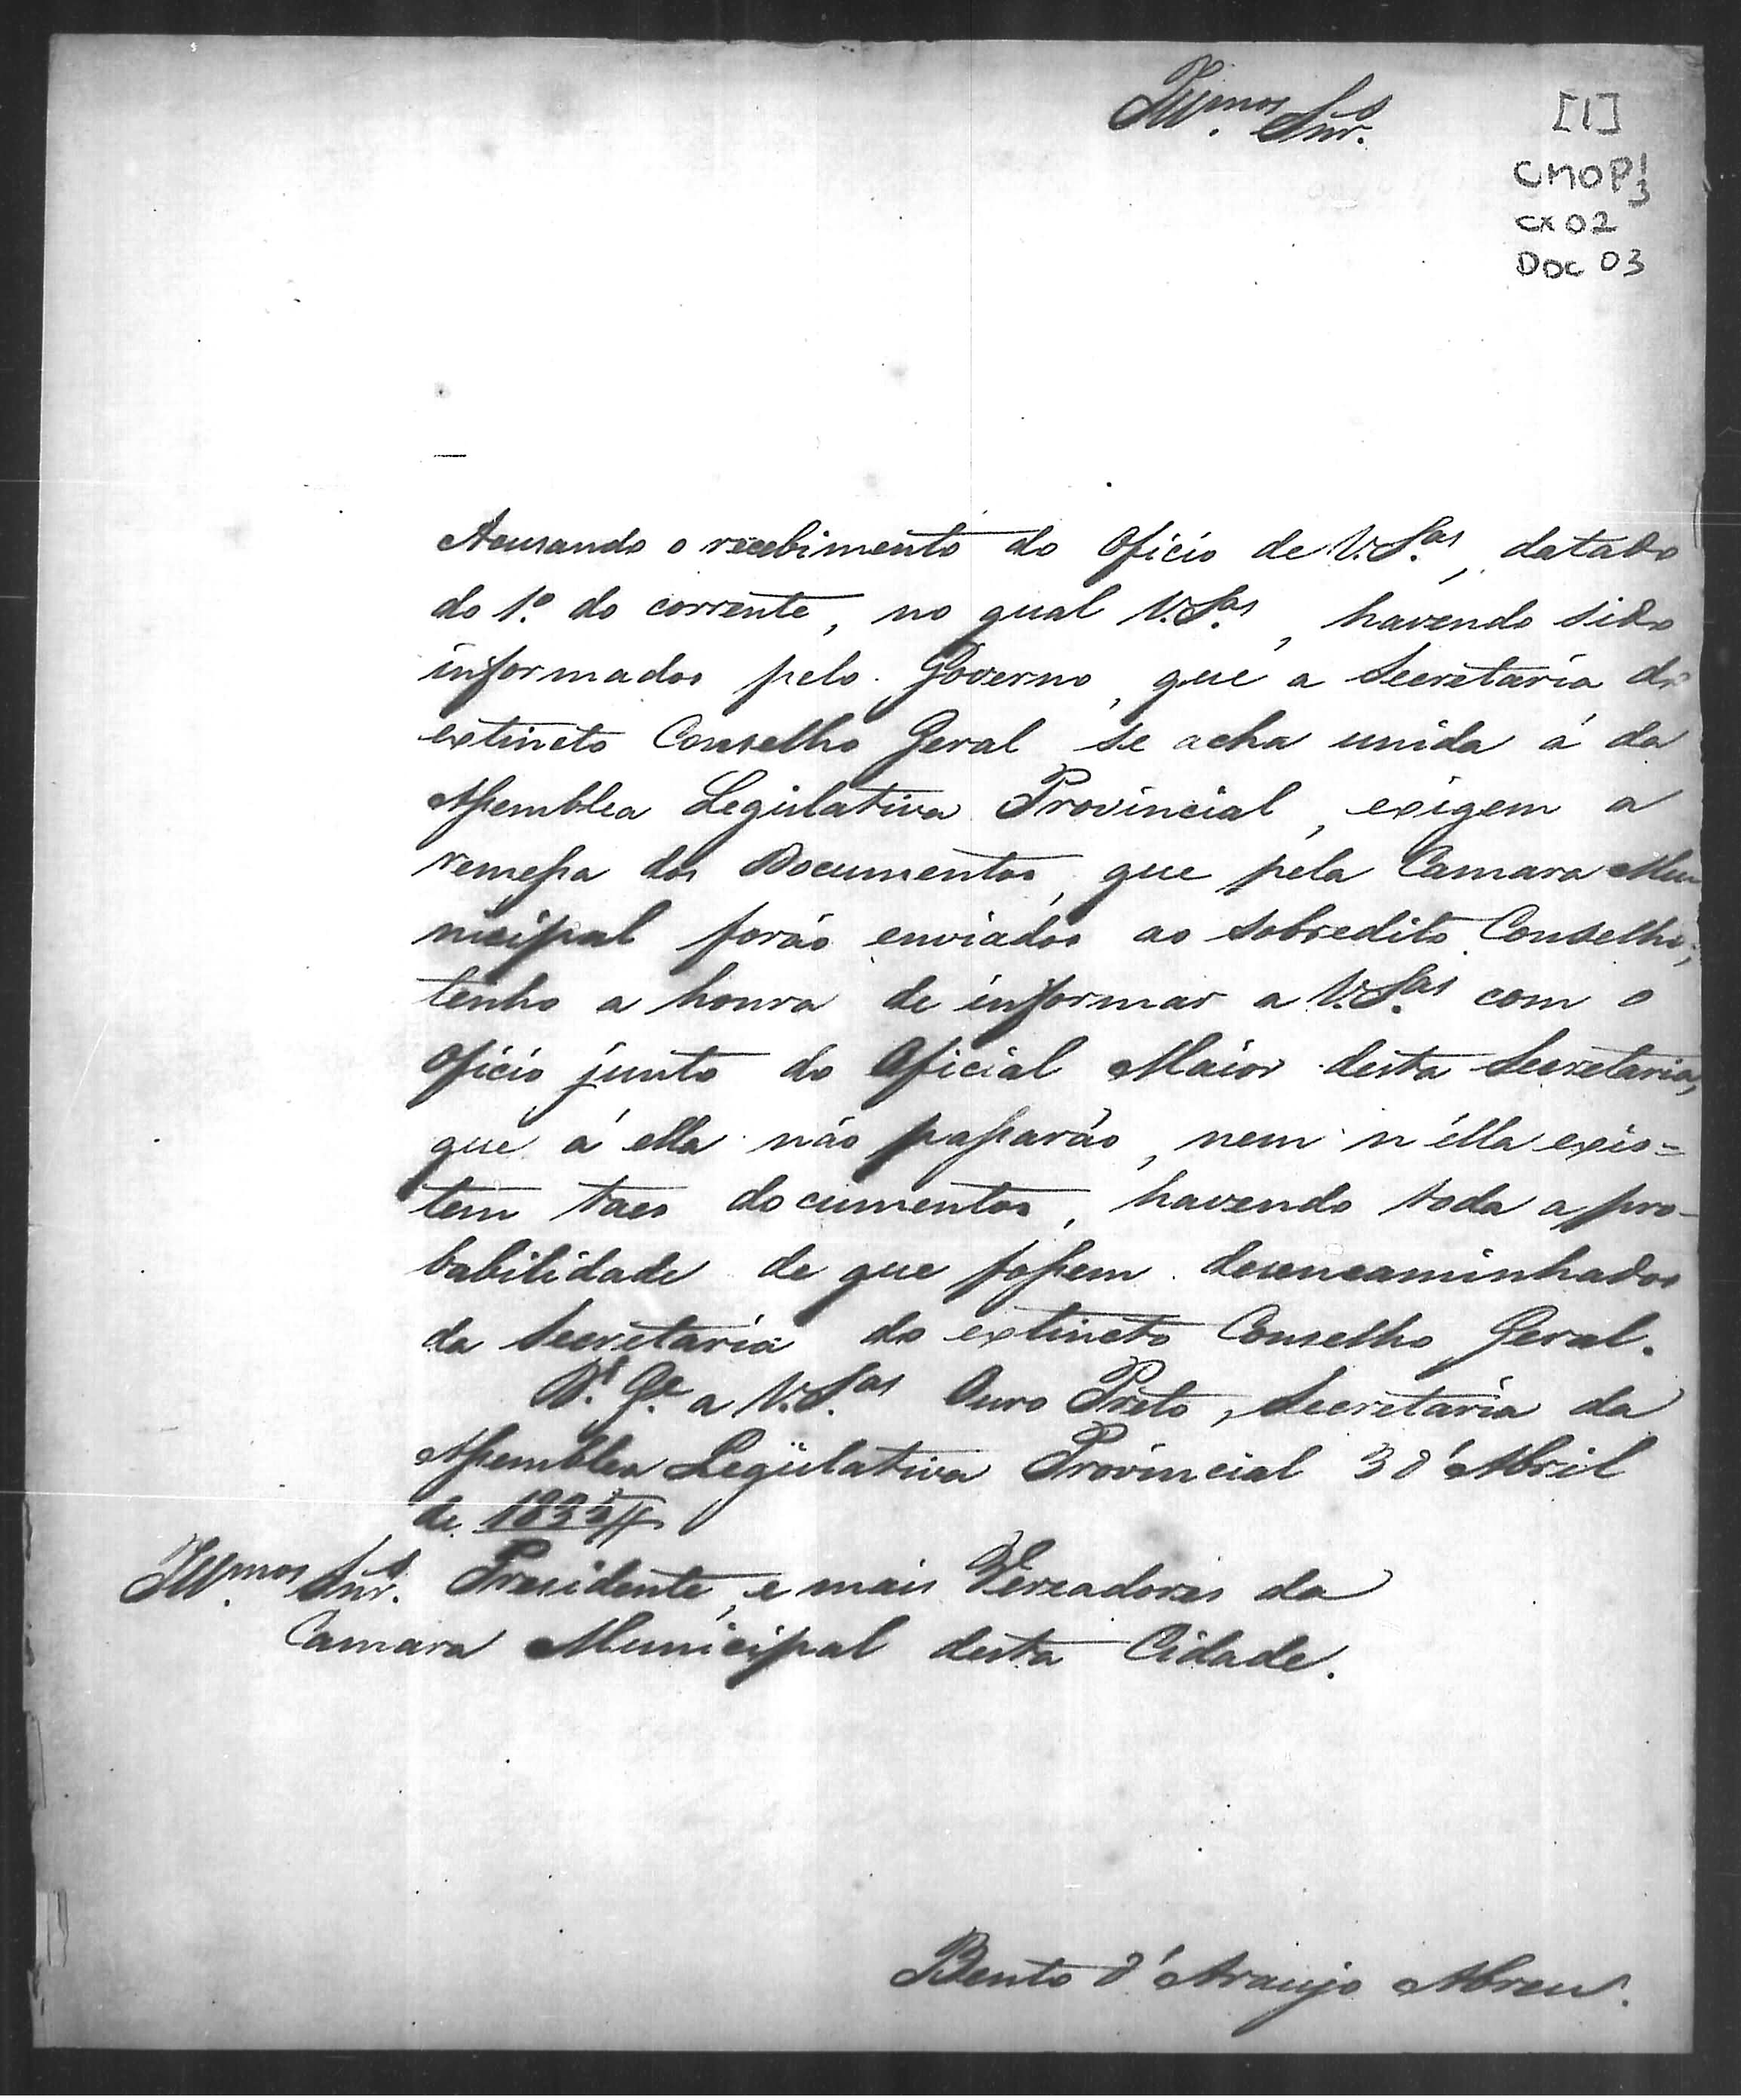 Ill.mos Snr.s
[1]
CMOP 1/3
CX 02
DOC 03
Acusando o recebimento do Oficio de V.S.as, datado
do 1.º do corrente, no qual V.S.as, havendo sido
informados pelo Governo, que a Secretaria do
extincto Conselho Geral se acha unida á da
Assemblea Legislativa Provincial, exigem a
remessa dos Documentos, que pela Camara Mu
nicipal forão enviados ao sobredito Conselho;
tenho a honra de informar a V.S.as com o
Oficio junto do Oficial Maior desta Secretaria,
que á ella não passarão, nem n'élla exis=
tem taes documentos, havendo toda a pro-
babilidade de que fossem desencaminhados
da Secretaria do extincto Conselho Geral.
D.s G.e a V.S.as Ouro Preto, Secretaria da
Assemblea Legislativa Provincial 3 d'Abril
de
Ill.mos Snr.s Presidente, e mais Vereadores da
Camara Municipal desta Cidade.
Bento d'Araujo Abreu.